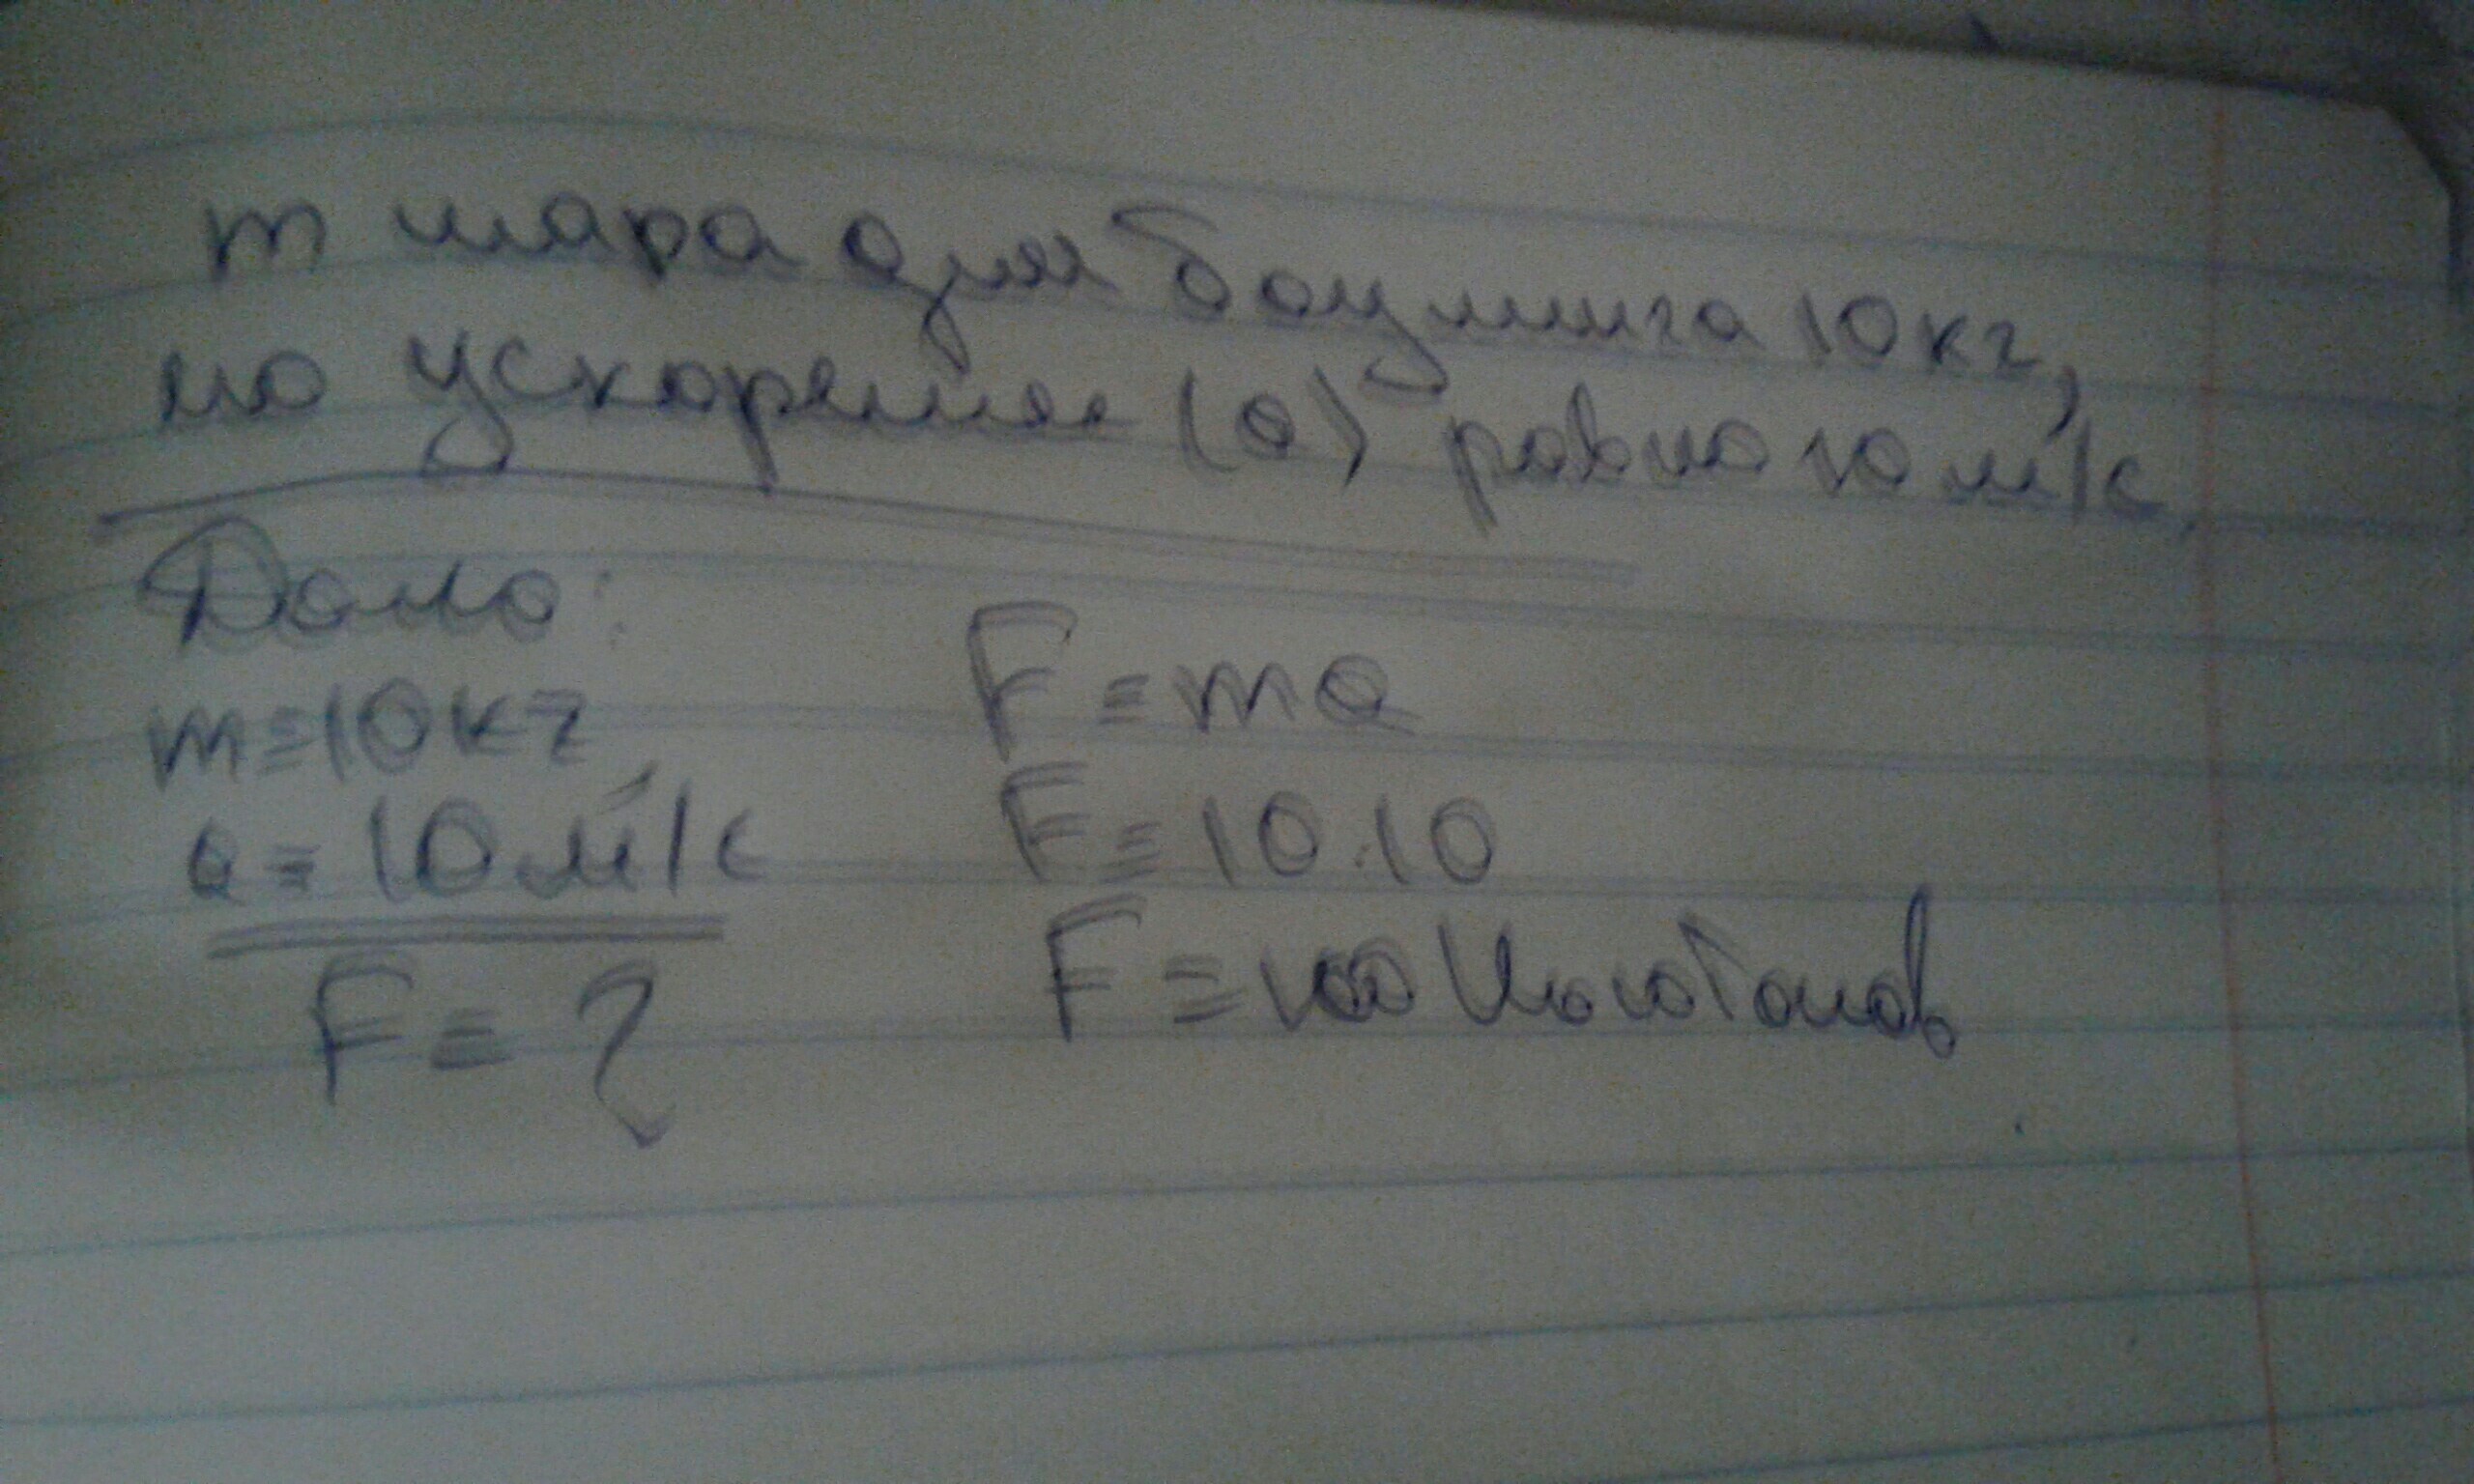 m шара для боулинга 10 кг,
но ускорение (a) равно 10 м/с
Дано:
m=10кг
a=10м/с
F=?
F=ma
F=10·10
F=100 Ньютонов